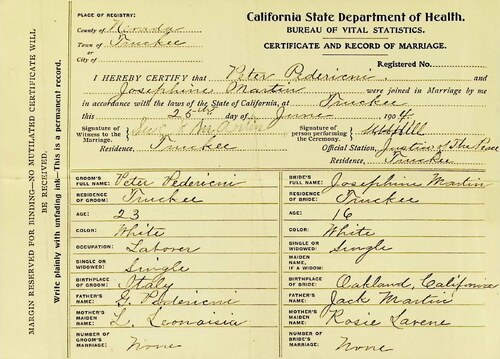 California State Department of Health.
BUREAU OF VITAL STATISTICS.
CERTIFICATE AND RECORD OF MARRIAGE.
PLACE OF REGISTRY:
County of Nevada
Town of Truckee
or
City of
Registered No.
I HEREBY CERTIFY that Peter Pedericini and
Josephine Martin were joined in Marriage by me
in accordance with the laws of the State of California, at Truckee
this 25th day of June 1904
Signature of Witness to the Marriage.
Residence, Truckee
Signature of person performing the Ceremony.
Official Station, Justice Of The Peace
Residence, Truckee
GROOM'S FULL NAME: Peter Pedericini
RESIDENCE OF GROOM: Truckee
AGE: 23
COLOR: White
OCCUPATION: Laborer
SINGLE OR WIDOWED: Single
BIRTHPLACE OF GROOM: Italy
FATHER'S NAME: G. Pedericini
MOTHER'S MAIDEN NAME: L.
NUMBER OF GROOM'S MARRIAGE: None
BRIDE'S FULL NAME: Josephine Martin
RESIDENCE OF BRIDE: Truckee
AGE: 16
COLOR: White
SINGLE OR WIDOWED: Single
MAIDEN NAME, IF A WIDOW:
BIRTHPLACE OF BRIDE: Oakland, California
FATHER'S NAME: Jack Martin
MOTHER'S MAIDEN NAME: Rosie Lavene
NUMBER OF BRIDE'S MARRIAGE: None
MARGIN RESERVED FOR BINDING—NO MUTILATED CERTIFICATE WILL
BE RECEIVED.
Write plainly with unfading ink—This is a permanent record.